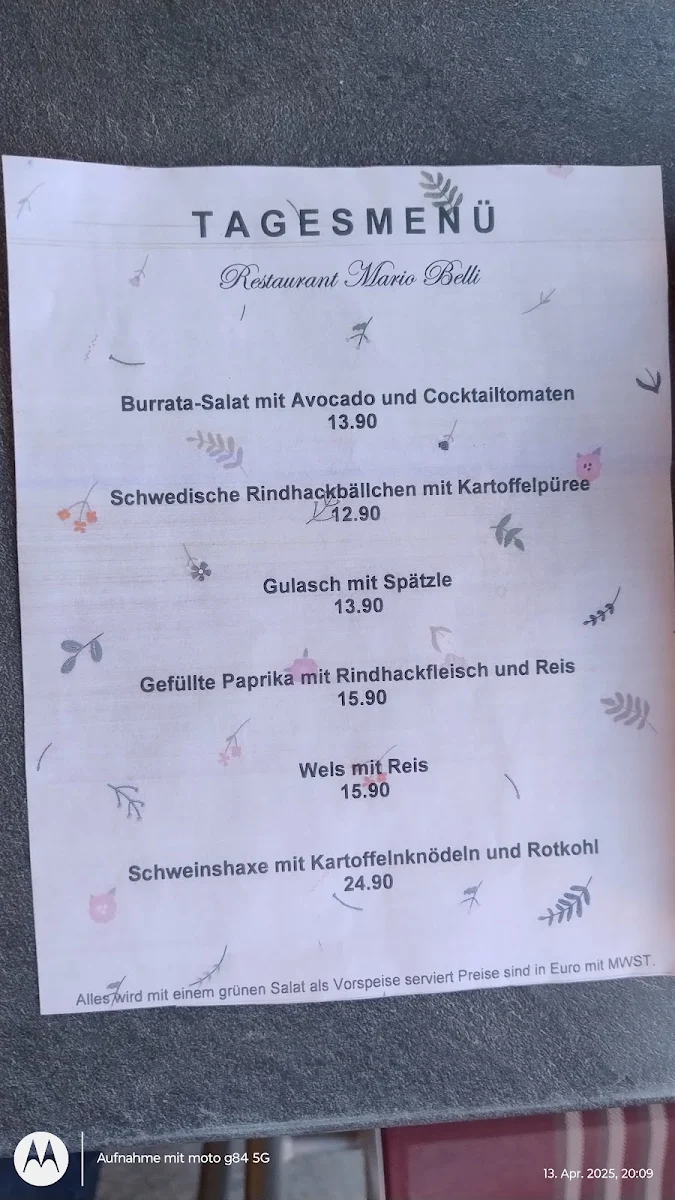 TAGESMENÜ
Restaurant Mario Belli
Burrata-Salat mit Avocado und Cocktailtomaten
13.90
Schwedische Rindhackbällchen mit Kartoffelpüree
12.90
Gulasch mit Spätzle
13.90
Gefüllte Paprika mit Rindhackfleisch und Reis
15.90
Wels mit Reis
15.90
Schweinshaxe mit Kartoffelnknödeln und Rotkohl
24.90
Alles wird mit einem grünen Salat als Vorspeise serviert Preise sind in Euro mit MWST.
Aufnahme mit moto g84 5G
13. Apr. 2025, 20:09